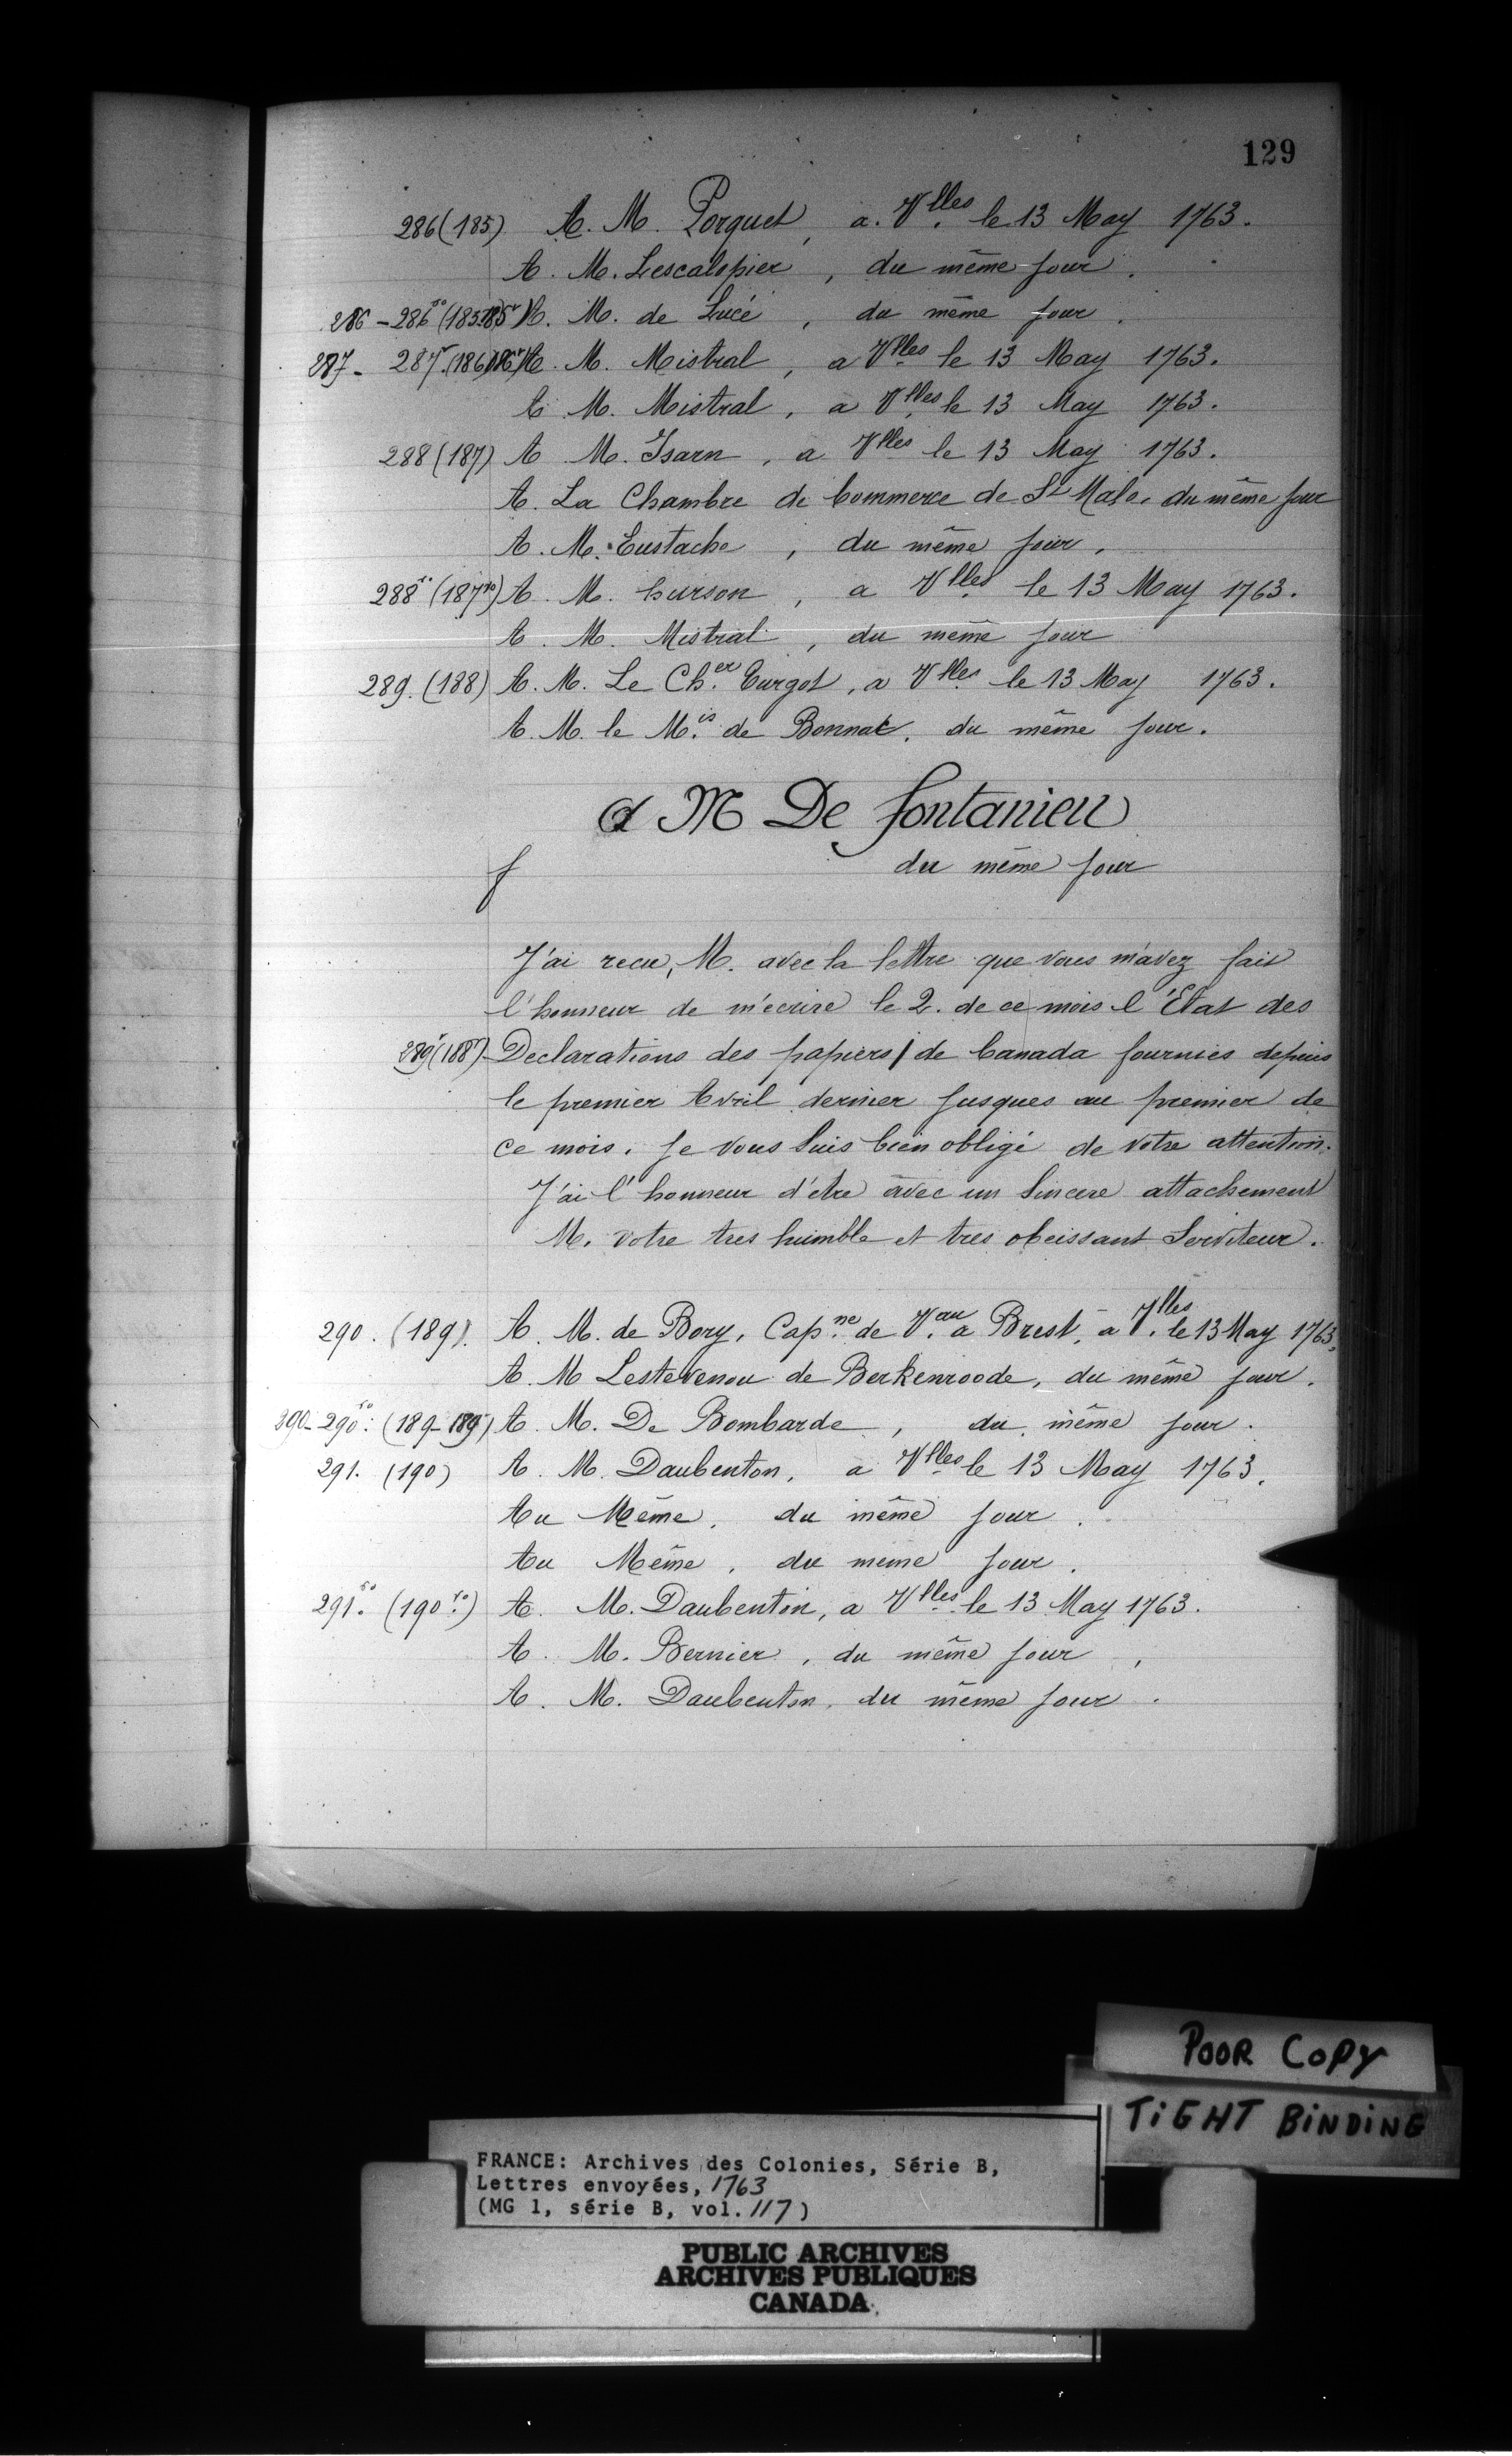 129
286 (185) A. M. Porquet, a. V.lles le 13 May 1763.
A. M. Lescalopier, du même jour.
286 - 286vo (185-185v) A. M. de Lucé, du même jour.
287 - 287v (186-186v) A. M. Mistral, a Vlles le 13 May 1763.
A M. Mistral, a Vlles le 13 May 1763.
288 (187) A M. Isarn, a Vlles le 13 May 1763.
A. La Chambre de Commerce de St Malo, du même jour
A. M. Eustache, du même jour,
288vo (187vo) A. M. Curson, a Vlles le 13 May 1763.
A. M. Mistral, du même jour
289. (188) A. M. Le Ch.er Turgot, a Vlles le 13 May 1763.
A. M. le M.is de Bonnac, du même jour.
A M De fontanieu
du même jour
J'ai recu, M. avec la lettre que vous m'avez fait
l'honneur de m'ecrire le 2. de ce mois l'État des
289v (188v) Declarations des papiers / de Canada fournies depuis
le premier Avril dernier jusques au premier de
ce mois. Je vous suis bien obligé de votre attention.
J'ai l'honneur d'etre avec un sincere attachement
M. votre tres humble et tres obeissant Serviteur.
290. (189). A. M. de Bory, Cap.ne de V.au a Brest, a V.lles le 13 May 1763,
A. M Lestevenou de Berkenroode, du même jour.
290-290vo: (189-189v) A M. De Bombarde, du même jour.
291. (190) A. M. Daubenton, a Vlles le 13 May 1763.
Au Même, du même jour.
Au Même, du même jour.
291vo. (190vo) A. M. Daubenton, a Vlles le 13 May 1763.
A. M. Bernier, du même jour,
A. M. Daubenton, du même jour.
POOR COPY
TiGHT BiNDiNG
FRANCE: Archives des Colonies, Série B,
Lettres envoyées, 1763
(MG 1, série B, vol. 117)
PUBLIC ARCHIVES
ARCHIVES PUBLIQUES
CANADA